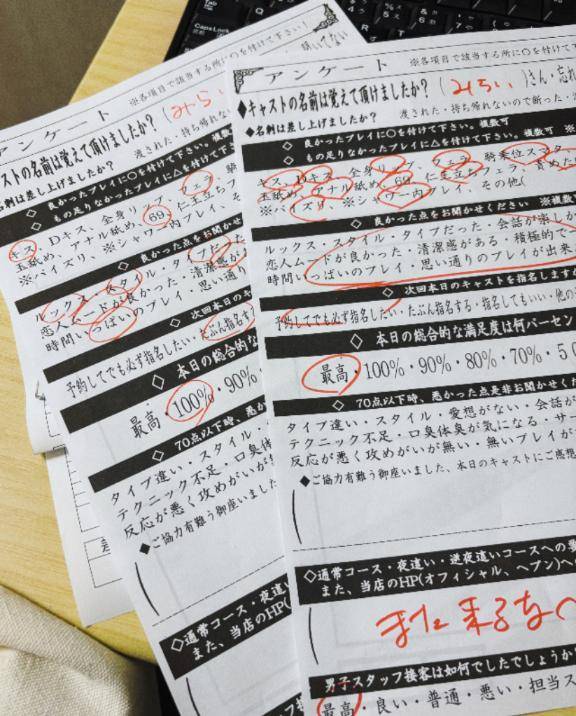 アンケート
※各項目で該当する所に○を付けて下さい！
ストの名前は覚えて頂けましたか？ （みらい
名刺は差し上げましたか？ 渡された・持ち帰れな
◇ 良かったプレイに○を付けて下さい。複数
◇ もの足りなかったプレイに△を付けて下さ
キス、Dキス、全身リップ、フェラ、騎
玉舐め、アナル舐め、69、仁王立ちフ
※パイズリ、※シャワー内プレイ、そ
◇ 良かった点をお聞かせ
ルックス・スタイル・タイプだった
恋人ムードが良かった・清潔感が
時間いっぱいのプレイ・思い通り
◇ 次回本日のキ
予約してでも必ず指名したい・たぶん指名す
◇ 本日の総合的な
最高・100%・90%
◇ 70点以下時、悪か
タイプ違い・スタイル・
テクニック不足・口臭体
反応が悪く攻めがいが
◆ご協力有難う御座いまし
◇通常コース・夜這い
また、当店のHP(
アンケート
※各項目で該当する所に○を付けて下
◆キャストの名前は覚えて頂けましたか？ （みらい ）さん・忘れ
◆名刺は差し上げましたか？ 渡された・持ち帰れないので断った・
◇ 良かったプレイに○を付けて下さい。複数可
◇ もの足りなかったプレイに△を付けて下さい。複数可
キス、Dキス、全身リップ、フェラ、騎乗位スマタ
玉舐め、アナル舐め、69、仁王立ちフェラ、責めた
※パイズリ、※シャワー内プレイ、その他(
◇ 良かった点をお聞かせください ※複数可
ルックス・スタイル・タイプだった・会話が楽しか
恋人ムードが良かった・清潔感がある・積極的で
時間いっぱいのプレイ・思い通りのプレイが出来
◇ 次回本日のキャストを指名しますか
予約してでも必ず指名したい・たぶん指名する・指名してもいい・他の
◇ 本日の総合的な満足度は何パーセン
最高・100%・90%・80%・70%・50
◇ 70点以下時、悪かった点是非お聞かせくだ
タイプ違い・スタイル・愛想がない・会話が
テクニック不足・口臭体臭が気になる・サー
反応が悪く攻めがいが無い・無いプレイが
◆ご協力有難う御座いました、本日のキャストにご感想
◇通常コース・夜這い・逆夜這いコースへの
また、当店のHP(オフィシャル、ヘブン)へ
また来るなへ
男子スタッフ接客は如何でしたでしょうか
最高・良い・普通・悪い・担当ス